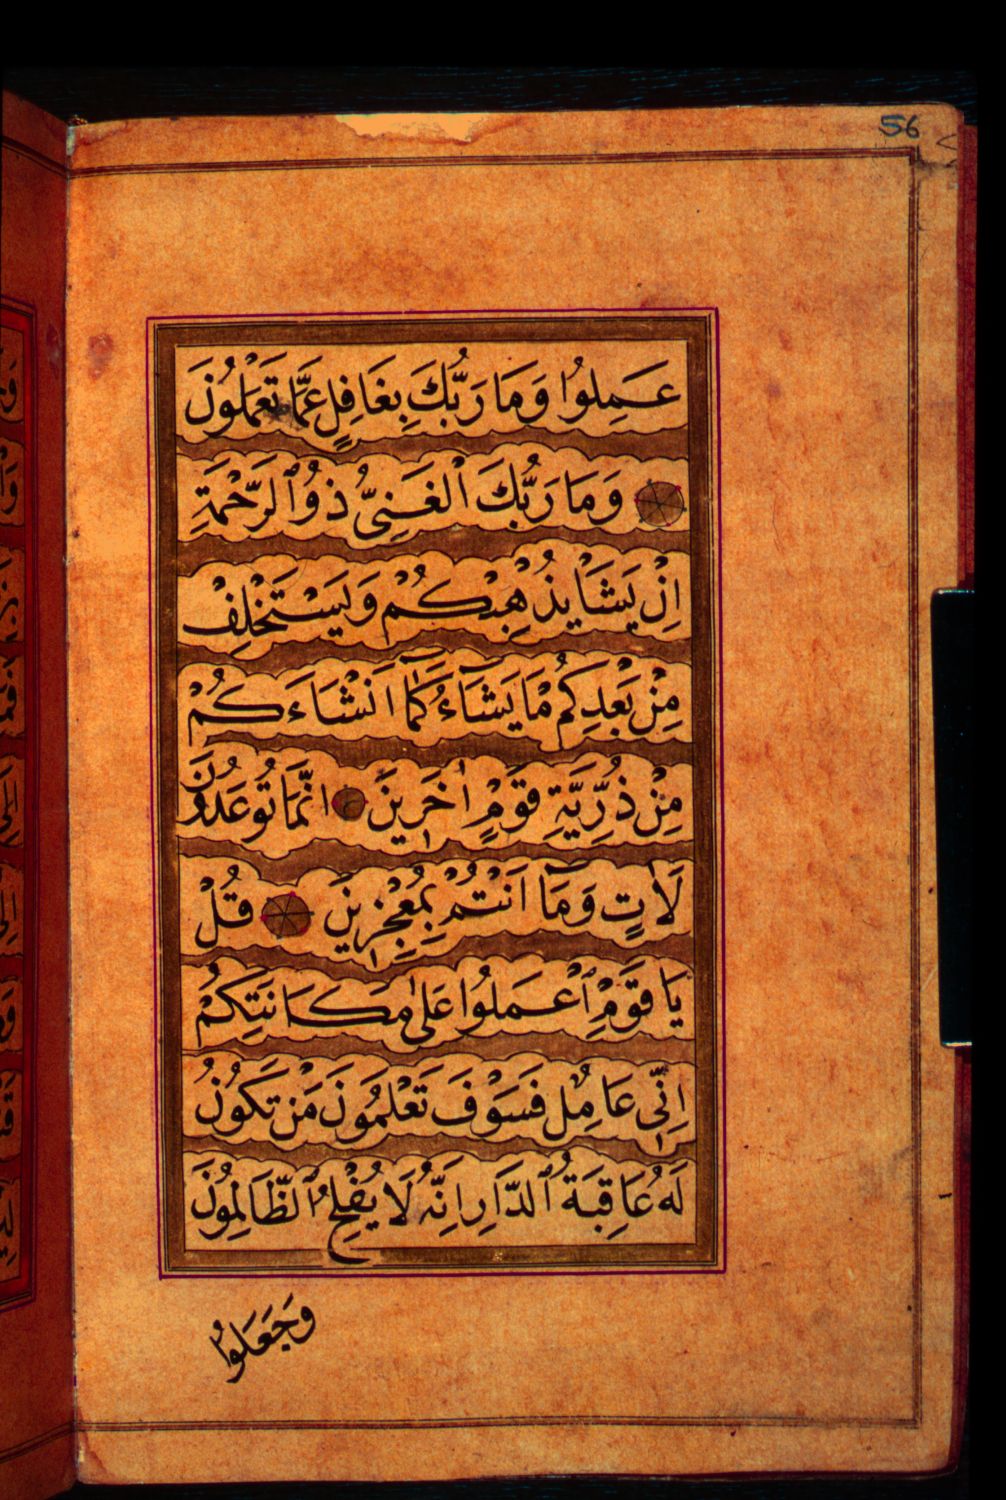 56
عَمِلُوا وَمَا رَبُّكَ بِغَافِلٍ عَمَّا تَعْمَلُونَ
وَمَا رَبُّكَ الْغَنِيُّ ذُو ٱلرَّحْمَةِ
اِنْ يَشَاْ يُذْهِبْكُمْ وَيَسْتَخْلِفْ
مِنْ بَعْدِكُمْ مَا يَشَآءُ كَمَٓا اَنْشَاَءَكُمْ
مِنْ ذُرِّيَّةِ قَوْمٍ اٰخَرِينَ اِنَّمَا تُوعَدُونَ
لَاٰتٍ وَمَٓا اَنْتُمْ بِمُعْجِزِينَ قُلْ
يَا قَوْمِ ٱعْمَلُوا عَلٰى مَكَانَتِكُمْ
اِنِّى عَامِلٌ فَسَوْفَ تَعْلَمُونَ مَنْ تَكُونُ
لَهُ عَاقِبَةُ ٱلدَّارِ اِنَّهُ لَا يُفْلِحُ ٱلظَّالِمُونَ
وَجَعَلُوا